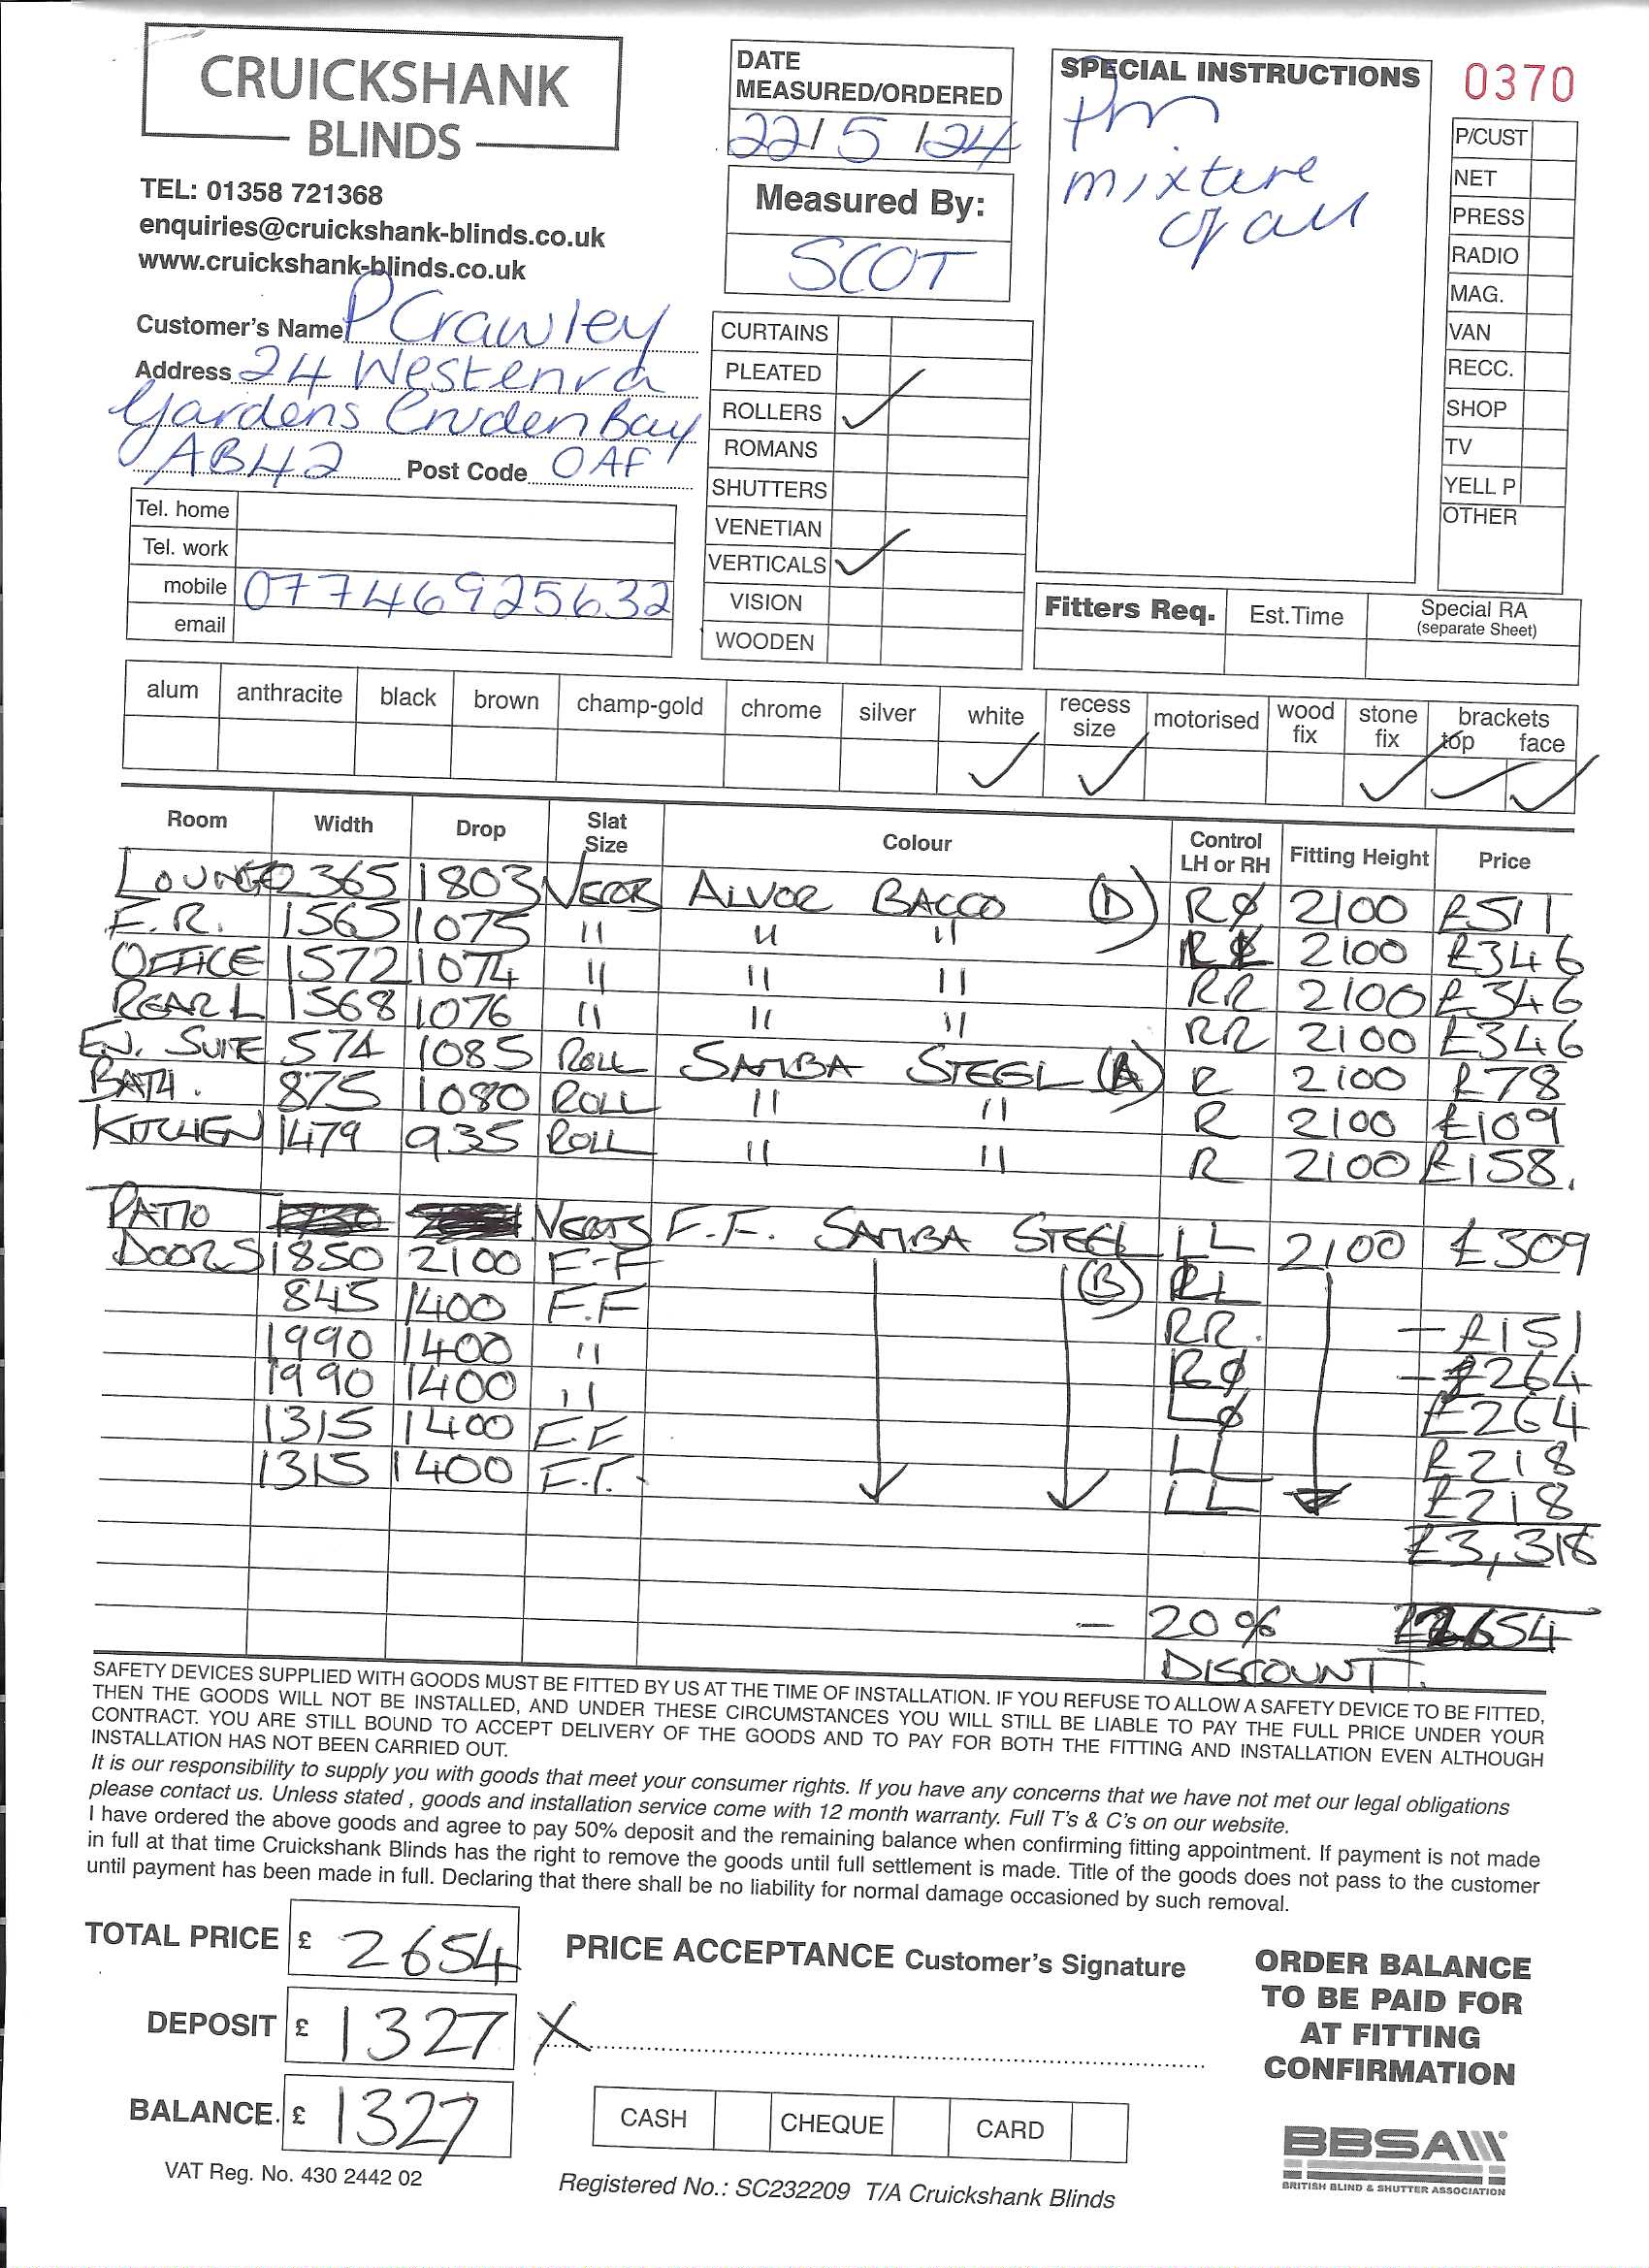 CRUICKSHANK
BLINDS
TEL: 01358 721368
enquiries@cruickshank-blinds.co.uk
www.cruickshank-blinds.co.uk
DATE
MEASURED/ORDERED
22/5/24
Measured By:
SCOT
SPECIAL INSTRUCTIONS
mixture
of all
0370
P/CUST
NET
PRESS
RADIO
MAG.
VAN
RECC.
SHOP
TV
YELL P
OTHER
Customer's Name P Crawley
Address 24 Westenra
Gardens Cruden Bay
AB42 Post Code 0AF
Tel. home
Tel. work
mobile 07746925632
email
CURTAINS
PLEATED
ROLLERS ✓
ROMANS
SHUTTERS
VENETIAN
VERTICALS ✓
VISION
WOODEN
Fitters Req. Est.Time Special RA
(separate Sheet)
alum anthracite black brown champ-gold chrome silver white recess size motorised wood fix stone fix brackets top face
✓ ✓ ✓ ✓ ✓
Room Width Drop Slat Size Colour Control LH or RH Fitting Height Price
LOUNGE 2365 1803 ALVOR BACCO (D) RØ 2100 £511
F.R. 1565 1075 " " " 2100 £346
OFFICE 1572 1074 " " " RR 2100 £346
REAR L 1568 1076 " " " RR 2100 £346
EN. SUITE 574 1085 ROLL SAMBA STEEL (A) R 2100 £78
BATH. 875 1080 ROLL " " R 2100 £109
KITCHEN 1479 935 ROLL " " R 2100 £158.
PATIO VERTS F.F. SAMBA STEEL LL 2100 £309
DOORS 1850 2100 F-F (B) RL
845 1400 F.F RR. - £151
1990 1400 " RØ - £264
1990 1400 " LØ £264
1315 1400 F.F LL £218
1315 1400 F.F. LL £218
£3,318
- 20% £2654
DISCOUNT.
SAFETY DEVICES SUPPLIED WITH GOODS MUST BE FITTED BY US AT THE TIME OF INSTALLATION. IF YOU REFUSE TO ALLOW A SAFETY DEVICE TO BE FITTED,
THEN THE GOODS WILL NOT BE INSTALLED, AND UNDER THESE CIRCUMSTANCES YOU WILL STILL BE LIABLE TO PAY THE FULL PRICE UNDER YOUR
CONTRACT. YOU ARE STILL BOUND TO ACCEPT DELIVERY OF THE GOODS AND TO PAY FOR BOTH THE FITTING AND INSTALLATION EVEN ALTHOUGH
INSTALLATION HAS NOT BEEN CARRIED OUT.
It is our responsibility to supply you with goods that meet your consumer rights. If you have any concerns that we have not met our legal obligations
please contact us. Unless stated , goods and installation service come with 12 month warranty. Full T's & C's on our website.
I have ordered the above goods and agree to pay 50% deposit and the remaining balance when confirming fitting appointment. If payment is not made
in full at that time Cruickshank Blinds has the right to remove the goods until full settlement is made. Title of the goods does not pass to the customer
until payment has been made in full. Declaring that there shall be no liability for normal damage occasioned by such removal.
TOTAL PRICE £ 2654
DEPOSIT £ 1327
BALANCE. £ 1327
PRICE ACCEPTANCE Customer's Signature
X
CASH CHEQUE CARD
ORDER BALANCE
TO BE PAID FOR
AT FITTING
CONFIRMATION
BBSA
BRITISH BLIND & SHUTTER ASSOCIATION
VAT Reg. No. 430 2442 02
Registered No.: SC232209 T/A Cruickshank Blinds